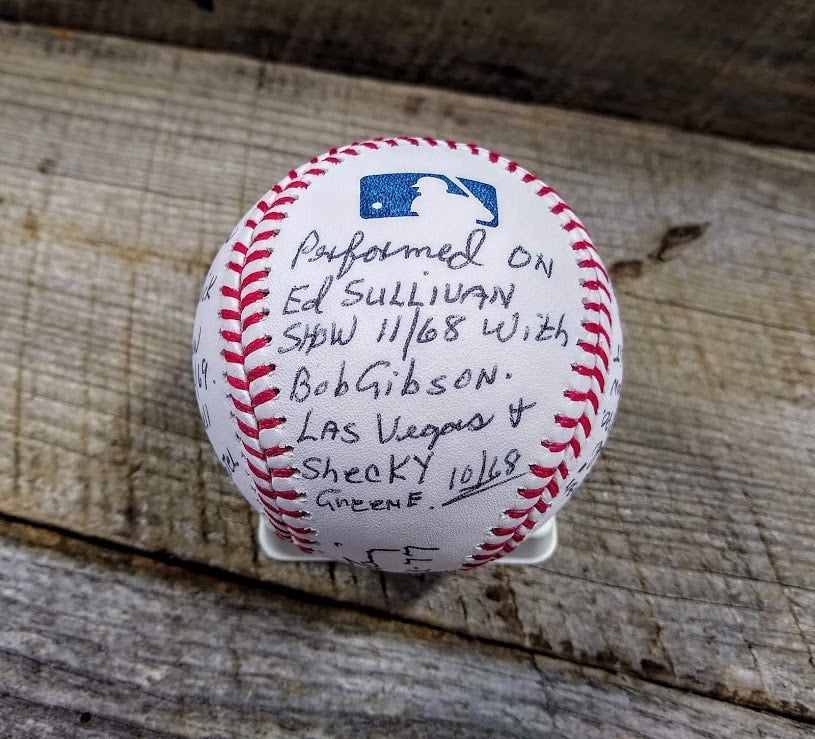 Performed ON
Ed SULLIVAN
SHOW 11/68 With
Bob Gibson.
LAS Vegas &
ShecKY 10/68
GREENE.
69.